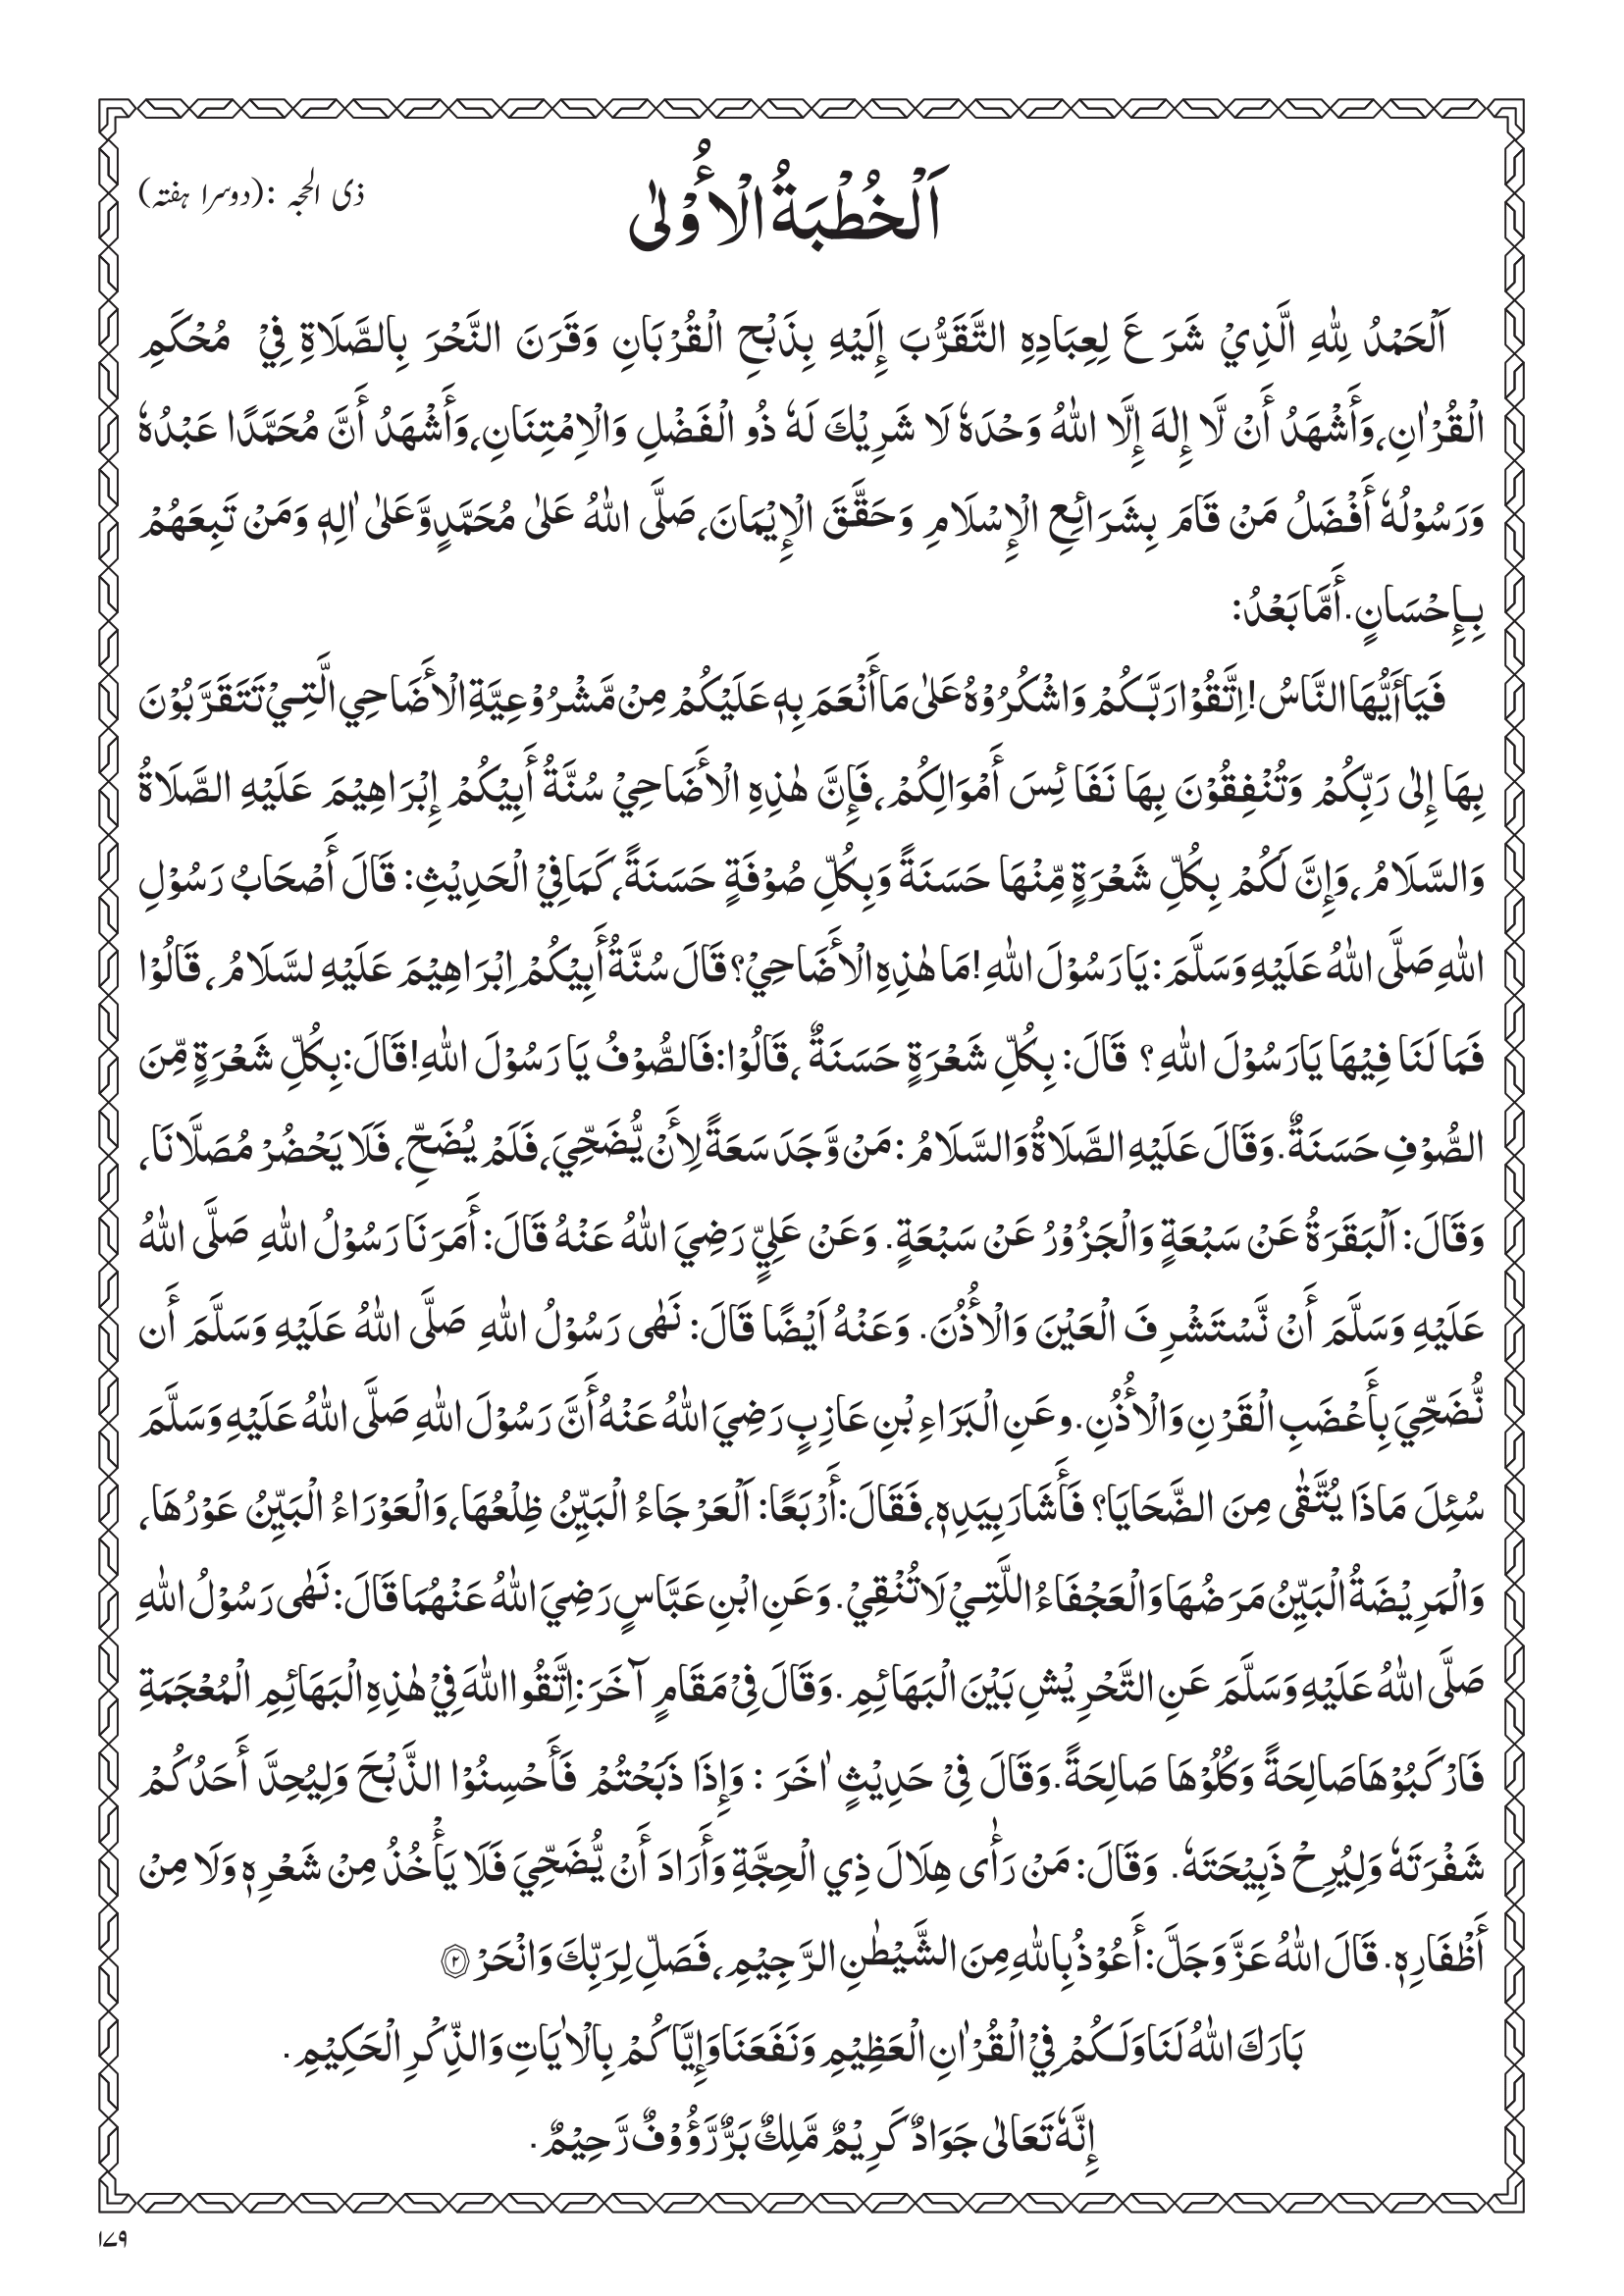 ذی الحجہ :(دوسرا ہفتہ)
اَلْخُطْبَةُ الْأُوْلٰی
اَلْحَمْدُ لِلّٰهِ الَّذِيْ شَرَعَ لِعِبَادِهِ التَّقَرُّبَ إِلَيْهِ بِذَبْحِ الْقُرْبَانِ وَقَرَنَ النَّحْرَ بِالصَّلَاةِ فِيْ مُحْكَمِ
الْقُرْاٰنِ،وَأَشْهَدُ أَنْ لَّا إِلٰهَ إِلَّا اللّٰهُ وَحْدَهٗ لَا شَرِيْكَ لَهٗ ذُو الْفَضْلِ وَالْاِمْتِنَانِ،وَأَشْهَدُ أَنَّ مُحَمَّدًا عَبْدُهٗ
وَرَسُوْلُهٗ أَفْضَلُ مَنْ قَامَ بِشَرَائِعِ الْإِسْلَامِ وَحَقَّقَ الْإِيْمَانَ،صَلَّى اللّٰهُ عَلٰى مُحَمَّدٍوَّعَلٰى اٰلِهٖ وَمَنْ تَبِعَهُمْ
بِإِحْسَانٍ.أَمَّا بَعْدُ:
فَيَاأَيُّهَا النَّاسُ!اِتَّقُوْا رَبَّكُمْ وَاشْكُرُوْهُ عَلٰى مَا أَنْعَمَ بِهٖ عَلَيْكُمْ مِنْ مَّشْرُوْعِيَّةِ الْأَضَاحِي الَّتِيْ تَتَقَرَّبُوْنَ
بِهَا إِلٰى رَبِّكُمْ وَتُنْفِقُوْنَ بِهَا نَفَائِسَ أَمْوَالِكُمْ،فَإِنَّ هٰذِهِ الْأَضَاحِيْ سُنَّةُ أَبِيْكُمْ إِبْرَاهِيْمَ عَلَيْهِ الصَّلَاةُ
وَالسَّلَامُ،وَإِنَّ لَكُمْ بِكُلِّ شَعْرَةٍ مِّنْهَا حَسَنَةً وَبِكُلِّ صُوْفَةٍ حَسَنَةً،كَمَافِيْ الْحَدِيْثِ: قَالَ أَصْحَابُ رَسُوْلِ
اللّٰهِ صَلَّى اللّٰهُ عَلَيْهِ وَسَلَّمَ : يَا رَسُوْلَ اللّٰهِ !مَا هٰذِهِ الْأَضَاحِيْ؟ قَالَ سُنَّةُ أَبِيْكُمْ اِبْرَاهِيْمَ عَلَيْهِ لسَّلَامُ ، قَالُوْا
فَمَا لَنَا فِيْهَا يَارَسُوْلَ اللّٰهِ ؟ قَالَ: بِكُلِّ شَعْرَةٍ حَسَنَةٌ ،قَالُوْا:فَالصُّوْفُ يَا رَسُوْلَ اللّٰهِ!قَالَ:بِكُلِّ شَعْرَةٍ مِّنَ
الصُّوْفِ حَسَنَةٌ.وَقَالَ عَلَيْهِ الصَّلَاةُ وَالسَّلَامُ : مَنْ وَّجَدَ سَعَةً لِأَنْ يُّضَحِّيَ،فَلَمْ يُضَحِّ، فَلَا يَحْضُرْ مُصَلَّانَا،
وَقَالَ: اَلْبَقَرَةُ عَنْ سَبْعَةٍ وَالْجَزُوْرُ عَنْ سَبْعَةٍ. وَعَنْ عَلِيٍّ رَضِيَ اللّٰهُ عَنْهُ قَالَ: أَمَرَنَا رَسُوْلُ اللّٰهِ صَلَّى اللّٰهُ
عَلَيْهِ وَسَلَّمَ أَنْ نَّسْتَشْرِفَ الْعَيْنَ وَالْأُذُنَ. وَعَنْهُ اَيْضًا قَالَ: نَهٰى رَسُوْلُ اللّٰهِ صَلَّى اللّٰهُ عَلَيْهِ وَسَلَّمَ أَن
نُّضَحِّيَ بِأَعْضَبِ الْقَرْنِ وَالْأُذُنِ.وعَنِ الْبَرَاءِ بْنِ عَازِبٍ رَضِيَ اللّٰهُ عَنْهُ أَنَّ رَسُوْلَ اللّٰهِ صَلَّى اللّٰهُ عَلَيْهِ وَسَلَّمَ
سُئِلَ مَاذَا يُتَّقٰى مِنَ الضَّحَايَا؟ فَأَشَارَ بِيَدِهٖ،فَقَالَ:أَرْبَعًا: اَلْعَرْجَاءُ الْبَيِّنُ ظِلْعُهَا،وَالْعَوْرَاءُ الْبَيِّنُ عَوْرُهَا،
وَالْمَرِيْضَةُ الْبَيِّنُ مَرَضُهَا وَالْعَجْفَاءُ اللَّتِيْ لَا تُنْقِيْ. وَعَنِ ابْنِ عَبَّاسٍ رَضِيَ اللّٰهُ عَنْهُمَا قَالَ: نَهٰى رَسُوْلُ اللّٰهِ
صَلَّى اللّٰهُ عَلَيْهِ وَسَلَّمَ عَنِ التَّحْرِيْشِ بَيْنَ الْبَهَائِمِ .وَقَالَ فِيْ مَقَامٍ آخَرَ:اِتَّقُوا اللّٰهَ فِيْ هٰذِهِ الْبَهَائِمِ الْمُعْجَمَةِ
فَارْكَبُوْهَا صَالِحَةً وَكُلُوْهَا صَالِحَةً.وَقَالَ فِيْ حَدِيْثٍ اٰخَرَ : وَإِذَا ذَبَحْتُمْ فَأَحْسِنُوْا الذَّبْحَ وَلِيُحِدَّ أَحَدُكُمْ
شَفْرَتَهٗ وَلِيُرِحْ ذَبِيْحَتَهٗ. وَقَالَ: مَنْ رَأٰى هِلَالَ ذِي الْحِجَّةِ وَأَرَادَ أَنْ يُّضَحِّيَ فَلَا يَأْخُذُ مِنْ شَعْرِهٖ وَلَا مِنْ
أَظْفَارِهٖ. قَالَ اللّٰهُ عَزَّ وَجَلَّ: أَعُوْذُ بِاللّٰهِ مِنَ الشَّيْطٰنِ الرَّجِيْمِ، فَصَلِّ لِرَبِّكَ وَانْحَرْ ۝۲
بَارَكَ اللّٰهُ لَنَا وَلَكُمْ فِيْ الْقُرْاٰنِ الْعَظِيْمِ وَنَفَعَنَا وَإِيَّاكُمْ بِالْاٰيَاتِ وَالذِّكْرِ الْحَكِيْمِ.
إِنَّهٗ تَعَالٰى جَوَادٌ كَرِيْمٌ مَّلِكٌ بَرٌّ رَّؤُوْفٌ رَّحِيْمٌ.
۱۷۹